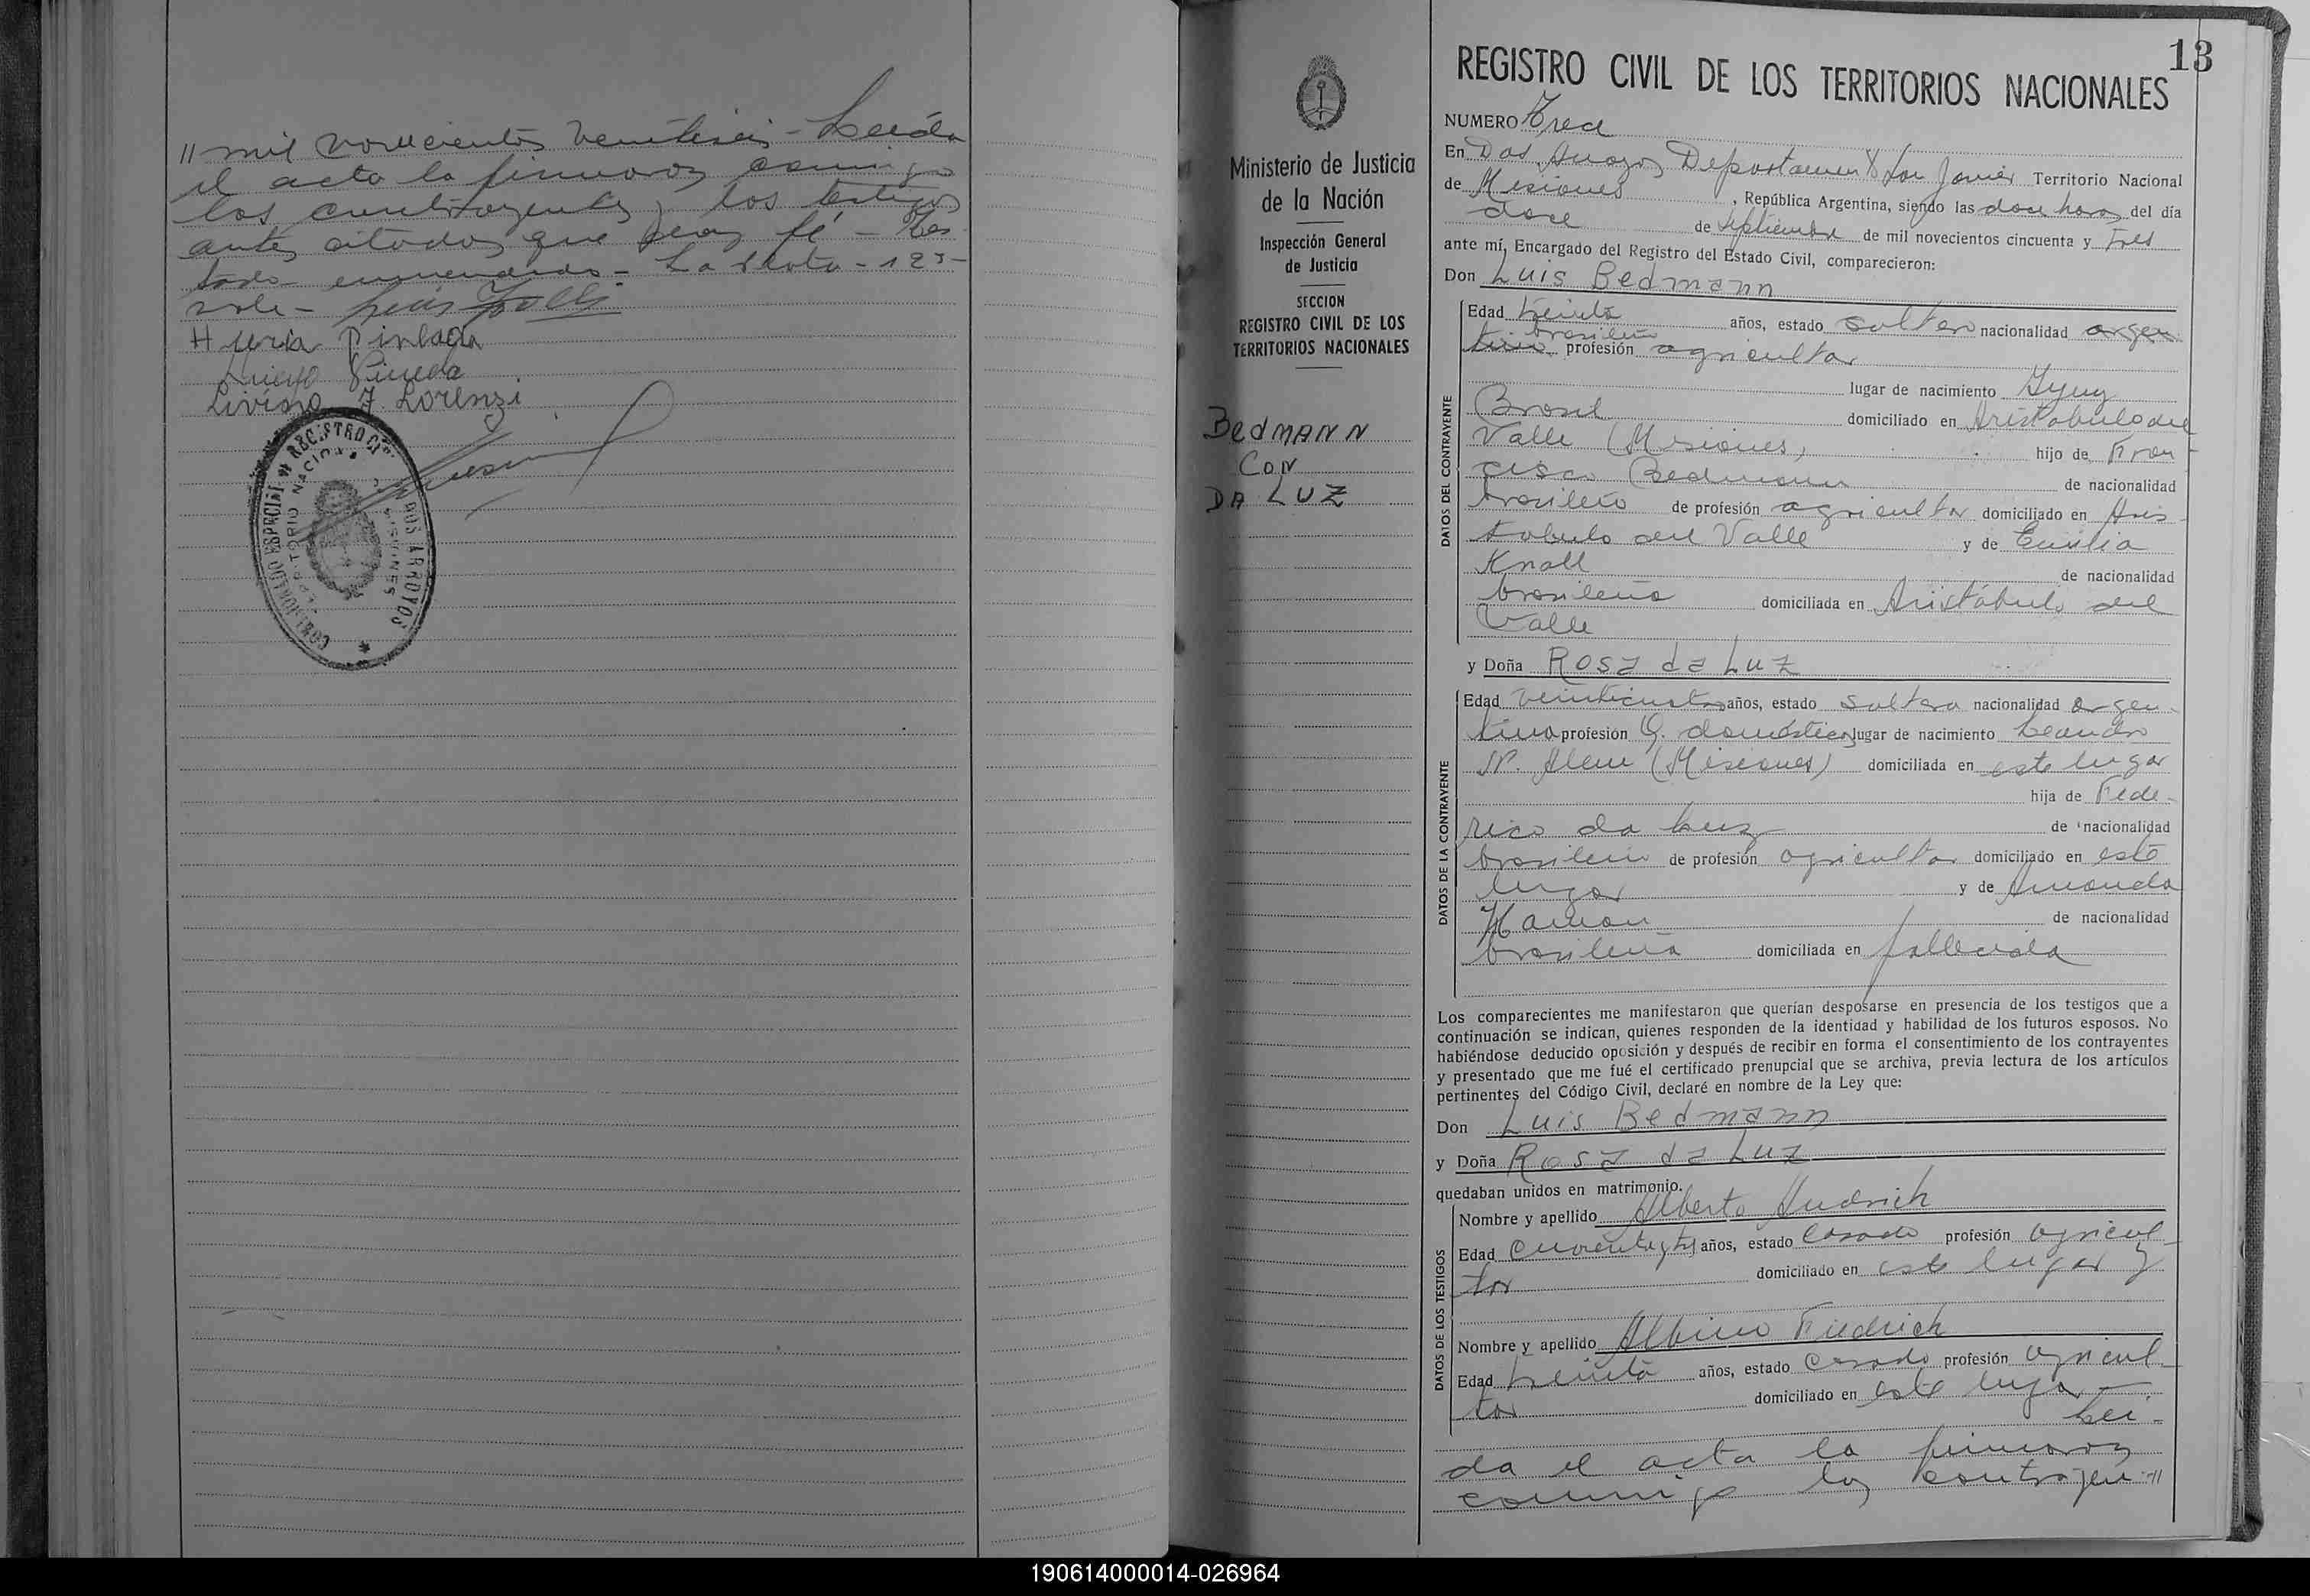 " mil novecientos veintiseis - Leida
el acta la firmaron conmigo
los contrayentes y los testigos
antes citados que doy fé -
tado - enmendado - La Plata - 123 -
vale -
Pineda
Liviano J. Lorenzi
REGISTRO CIVIL
DOS ARROYOS
MISIONES
13
REGISTRO CIVIL DE LOS TERRITORIOS NACIONALES
Ministerio de Justicia
de la Nación
Inspección General
de Justicia
SECCION
REGISTRO CIVIL DE LOS
TERRITORIOS NACIONALES
BEdMANN
CON
DA LUZ
NUMERO Trece
En Dos Arroyos Departamento San Javier Territorio Nacional
de Misiones, República Argentina, siendo las doce horas del día
doce de Septiembre de mil novecientos cincuenta y tres
ante mí, Encargado del Registro del Estado Civil, comparecieron:
Don Luis Bedmann
DATOS DEL CONTRAYENTE
Edad treinta años, estado soltero nacionalidad argen
tino brasileño profesión agricultor
lugar de nacimiento Yjuy
Brasil domiciliado en Aristobulo del
Valle (Misiones) hijo de Fran
cisco Bedmann de nacionalidad
brasileño de profesión agricultor domiciliado en Aris
tobulo del Valle y de Emilia
Knall de nacionalidad
brasileña domiciliada en Aristobulo del
Valle
y Doña Rosa da Luz
DATOS DE LA CONTRAYENTE
Edad veinticuatro años, estado soltera nacionalidad argen
tina profesión Q. domésticos lugar de nacimiento Leandro
N. Alem (Misiones) domiciliada en este lugar
hija de Fede-
rico da Luz de nacionalidad
brasileño de profesión agricultor domiciliado en este
lugar y de Amanda
de nacionalidad
brasileña domiciliada en fallecida
Los comparecientes me manifestaron que querían desposarse en presencia de los testigos que a
continuación se indican, quienes responden de la identidad y habilidad de los futuros esposos. No
habiéndose deducido oposición y después de recibir en forma el consentimiento de los contrayentes
y presentado que me fué el certificado prenupcial que se archiva, previa lectura de los artículos
pertinentes del Código Civil, declaré en nombre de la Ley que:
Don Luis Bedmann
y Doña Rosa da Luz
quedaban unidos en matrimonio.
DATOS DE LOS TESTIGOS
Nombre y apellido Alberto
Edad años, estado casado profesión agricul-
tor domiciliado en este lugar y
Nombre y apellido Albino Fiedrich
Edad treinta años, estado casado profesión agricul-
tor domiciliado en este lugar -
Lei-
da el acta la firmaron
conmigo los contrayen "
190614000014-026964